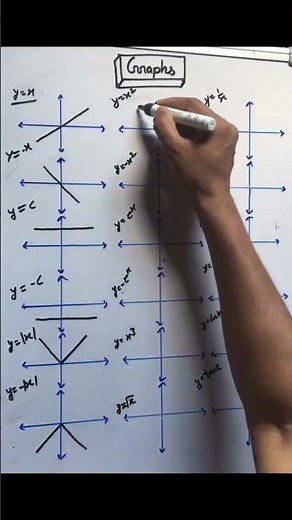 Graphs
y=x
y=-x
y=c
y=-c
y=|x|
y=-|x|
y=x²
y=-x²
y=eˣ
y=-eˣ
y=x³
y=√x